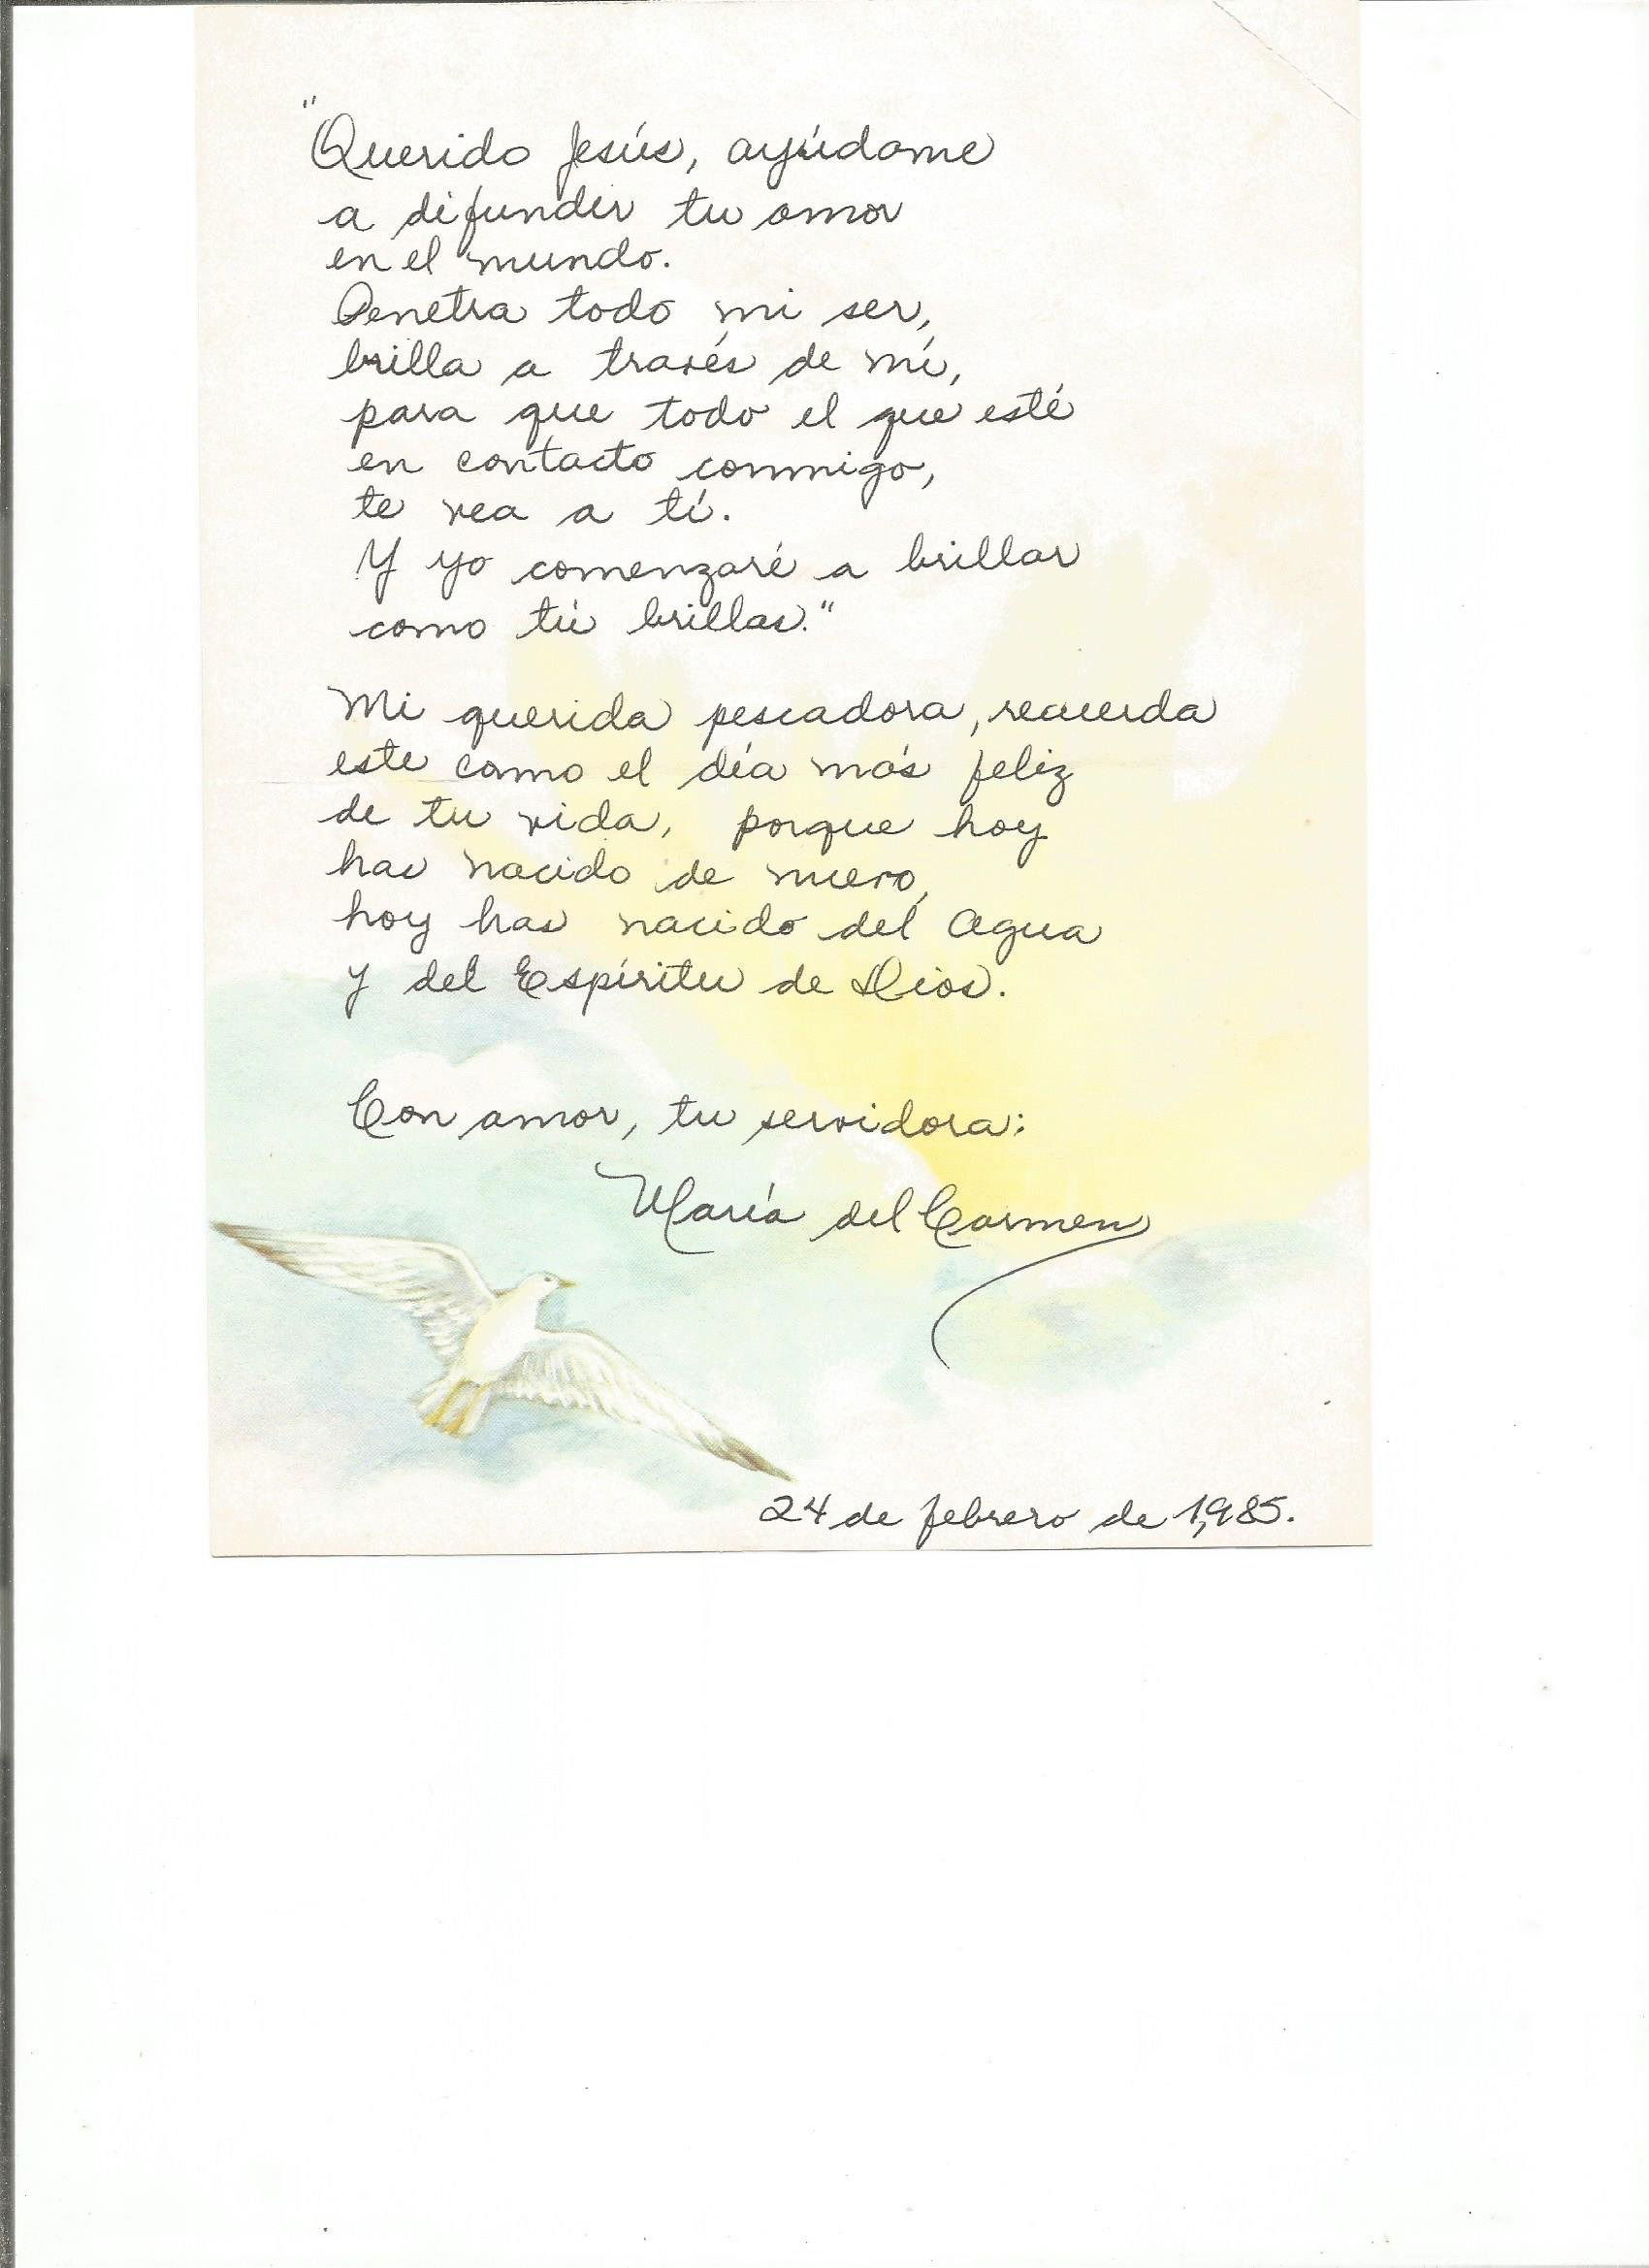 "Querido Jesús, ayúdame
a difundir tu amor
en el mundo.
Penetra todo mi ser,
brilla a través de mí,
para que todo el que esté
en contacto conmigo,
te vea a tí.
Y yo comenzaré a brillar
como tú brillas."
Mi querida pescadora, recuerda
este como el día más feliz
de tu vida, porque hoy
has nacido de nuevo,
hoy has nacido del Agua
y del Espíritu de Dios.
Con amor, tu servidora:
María del Carmen
24 de febrero de 1,985.